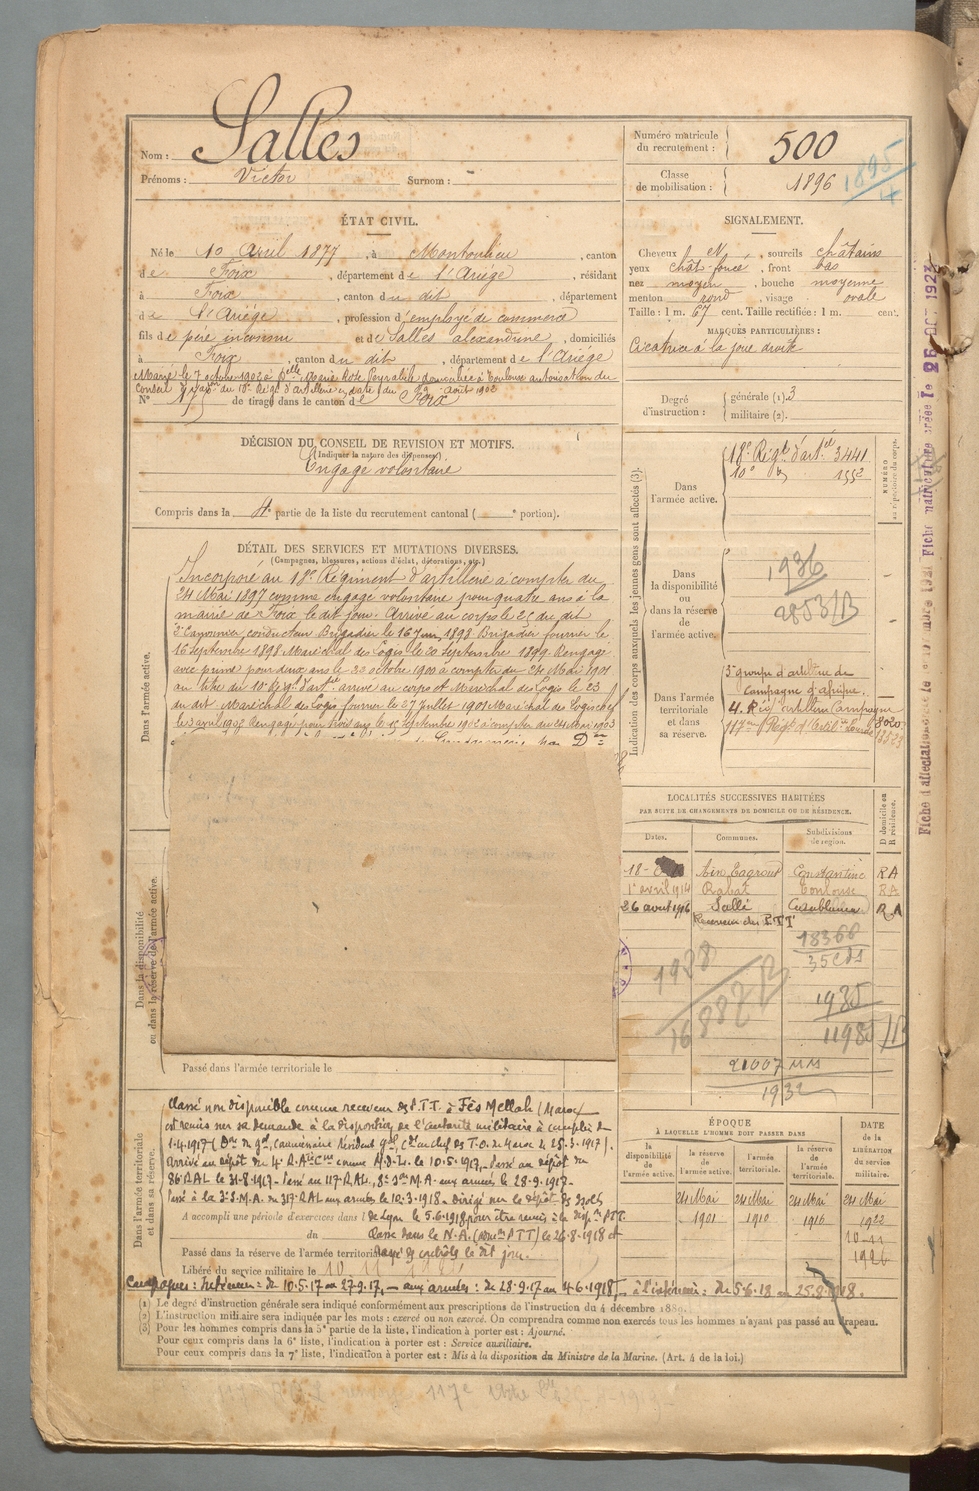 Nom : Salles
Prénoms : Victor Surnom : -
Numéro matricule du recrutement : 500
Classe de mobilisation : 1896
1895/4
ÉTAT CIVIL.
Né le 10 Avril 1877, à Montoulieu, canton
de Foix, département de l'Ariège, résidant
à Foix, canton du dit, département
de l'Ariège, profession d'employé de commerce
fils de père inconnu et de Salles alexandrine, domiciliés
à Foix, canton du dit, département de l'Ariège
Marié le 7 octobre 1902 à Delle Marie Rose
Conseil d'adon du 18e Régt d'artillerie en date du août 1902
N° de tirage dans le canton de Foix
SIGNALEMENT.
Cheveux N, sourcils châtains
yeux chât-foncé, front bas
nez moyen, bouche moyenne
menton rond, visage ovale
Taille : 1 m. 67 cent. Taille rectifiée : 1 m. cent.
MARQUES PARTICULIÈRES :
Cicatrice à la joue droite
Degré d'instruction : générale (1). 3
militaire (2).
DÉCISION DU CONSEIL DE REVISION ET MOTIFS.
(Indiquer la nature des dispenses)
Engagé volontaire
Compris dans la 4e partie de la liste du recrutement cantonal ( e portion).
DÉTAIL DES SERVICES ET MUTATIONS DIVERSES.
(Campagnes, blessures, actions d'éclat, décorations, etc.)
Dans l'armée active.
Incorporé au 18e Régiment d'artillerie à compter du
24 Mai 1897 comme engagé volontaire pour quatre ans à la
mairie de Foix le dit jour. Arrivé au corps le 25 du dit
2e Canonnier conducteur Brigadier le 16 1898 Brigadier fourrier le
16 Septembre 1898 Maréchal des Logis le 20 Septembre 1899. Rengagé
avec prime pour deux ans le 20 octobre 1900 à compter du 24 Mai 1901
au titre du 10e Régt d'artie arrivé au corps et Maréchal des Logis le 23
du dit. Maréchal des Logis fourrier le 27 juillet 1901 Maréchal des Logis chef
le 3 avril 1902 Rengagé pour trois ans le Septembre 1902 à compter du 24 Mai 1903
Indication des corps auxquels les jeunes gens sont affectés (3).
NUMÉRO au répertoire du corps.
Dans l'armée active.
18e Régt d'artie 3441
10e do 1552
Dans la disponibilité ou dans la réserve de l'armée active.
1936
2853/B
Dans l'armée territoriale et dans sa réserve.
5e groupe d'artillerie de
campagne d'afrique.
4e Régt artillerie Campagne
117e Régt d'Artie Lourde
Dans la disponibilité ou dans la réserve de l'armée active.
Passé dans l'armée territoriale le
LOCALITÉS SUCCESSIVES HABITÉES
PAR SUITE DE CHANGEMENTS DE DOMICILE OU DE RÉSIDENCE.
Dates. Communes. Subdivisions de région. D domicile ou R résidence.
18- Aïn Tagrout Constantine RA
1er avril 1914 Rabat Toulouse RA
26 avril 1916 Sallé Casablanca RA
Receveur des PTT
18360
1928
16887 B
1935
11985/B
21007
1932
Dans l'armée territoriale et dans sa réserve.
Classé non disponible comme receveur des P.T.T. à Fès Mellah (Maroc)
est remis sur sa demande à la disposition de l'autorité militaire à compter du
1-4-1917 (Don du Gal, Commissaire Résident Gal, Ct en chef des T.O. du Maroc du 25.3.1917).
Arrivé au dépôt du 4e R.A. Cne comme M.D.L. le 10.5.1917. Passé au dépôt du
86e RAL le 31-8-1917. Passé au 117e RAL, 8e S M.A. aux armées le 28.9.1917.
Passé à la 3e S.M.A. du 317e RAL aux armées le 10-3-1918. Dirigé sur le dépôt des isolés
A accompli une période d'exercices dans l de Lyon le 5.6.1918 pour être remis à la dispon PTT.
du Classé dans le N.A. PTT) le 26.8.1918 et
Passé dans la réserve de l'armée territoriale rayé des contrôles le dit jour.
Libéré du service militaire le 10
Campagnes : Intérieur : du 10.5.17 au 27.9.17, - aux armées : du 28.9.17 au 4.6.1918, - à l'intérieur : du 5.6.18 au 25.8.1918.
ÉPOQUE
À LAQUELLE L'HOMME DOIT PASSER DANS
la disponibilité de l'armée active.
la réserve de l'armée active. 24 Mai 1901
l'armée territoriale. 24 Mai 1910
la réserve de l'armée territoriale. 24 Mai 1916
DATE de la LIBÉRATION du service militaire. 24 Mai 1922
10-11
1926
(1) Le degré d'instruction générale sera indiqué conformément aux prescriptions de l'instruction du 4 décembre 1889.
(2) L'instruction militaire sera indiquée par les mots : exercé ou non exercé. On comprendra comme non exercés tous les hommes n'ayant pas passé au drapeau.
(3) Pour les hommes compris dans la 5e partie de la liste, l'indication à porter est : Ajourné.
Pour ceux compris dans la 6e liste, l'indication à porter est : Service auxiliaire.
Pour ceux compris dans la 7e liste, l'indication à porter est : Mis à la disposition du Ministre de la Marine. (Art. 4 de la loi.)